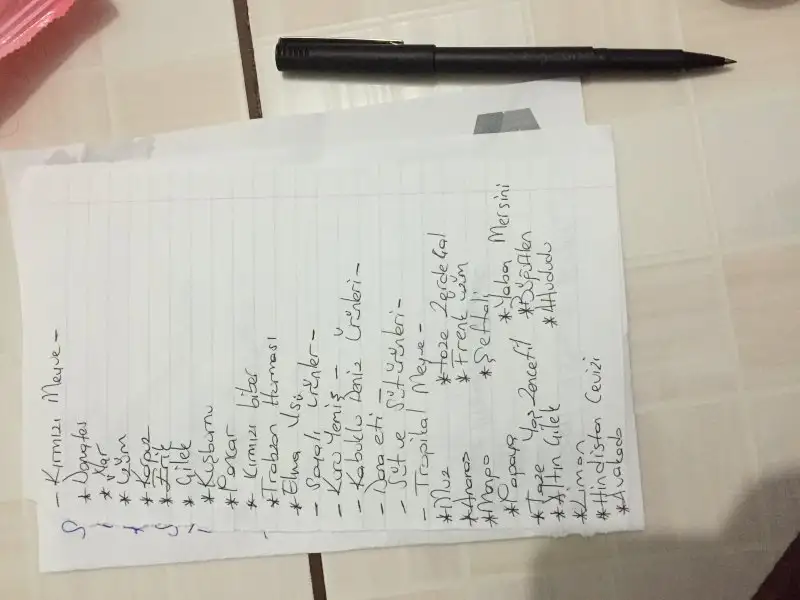 - Kırmızı Meyve -
* Domates
* Nar
* Üzüm
* Karpuz
* Erik
* Çilek
* Kuşburnu
* Pancar
* Kırmızı biber
* Trabzon Hurması
* Elma
- Soyalı ürünler -
- Kuru yemiş -
- Kabuklu Deniz Ürünleri -
- Dana eti -
- Süt ve Süt ürünleri -
- Tropikal Meyve -
* Muz * taze Zerdeçal
* Ananas * Frenk üzüm
* Mango * Şeftali
* Papaya * Yaban Mersini
* Taze Yaş zencefil * Böğürtlen
* Altın Çilek * Ahududu
* Limon
* Hindistan Cevizi
* Avakado